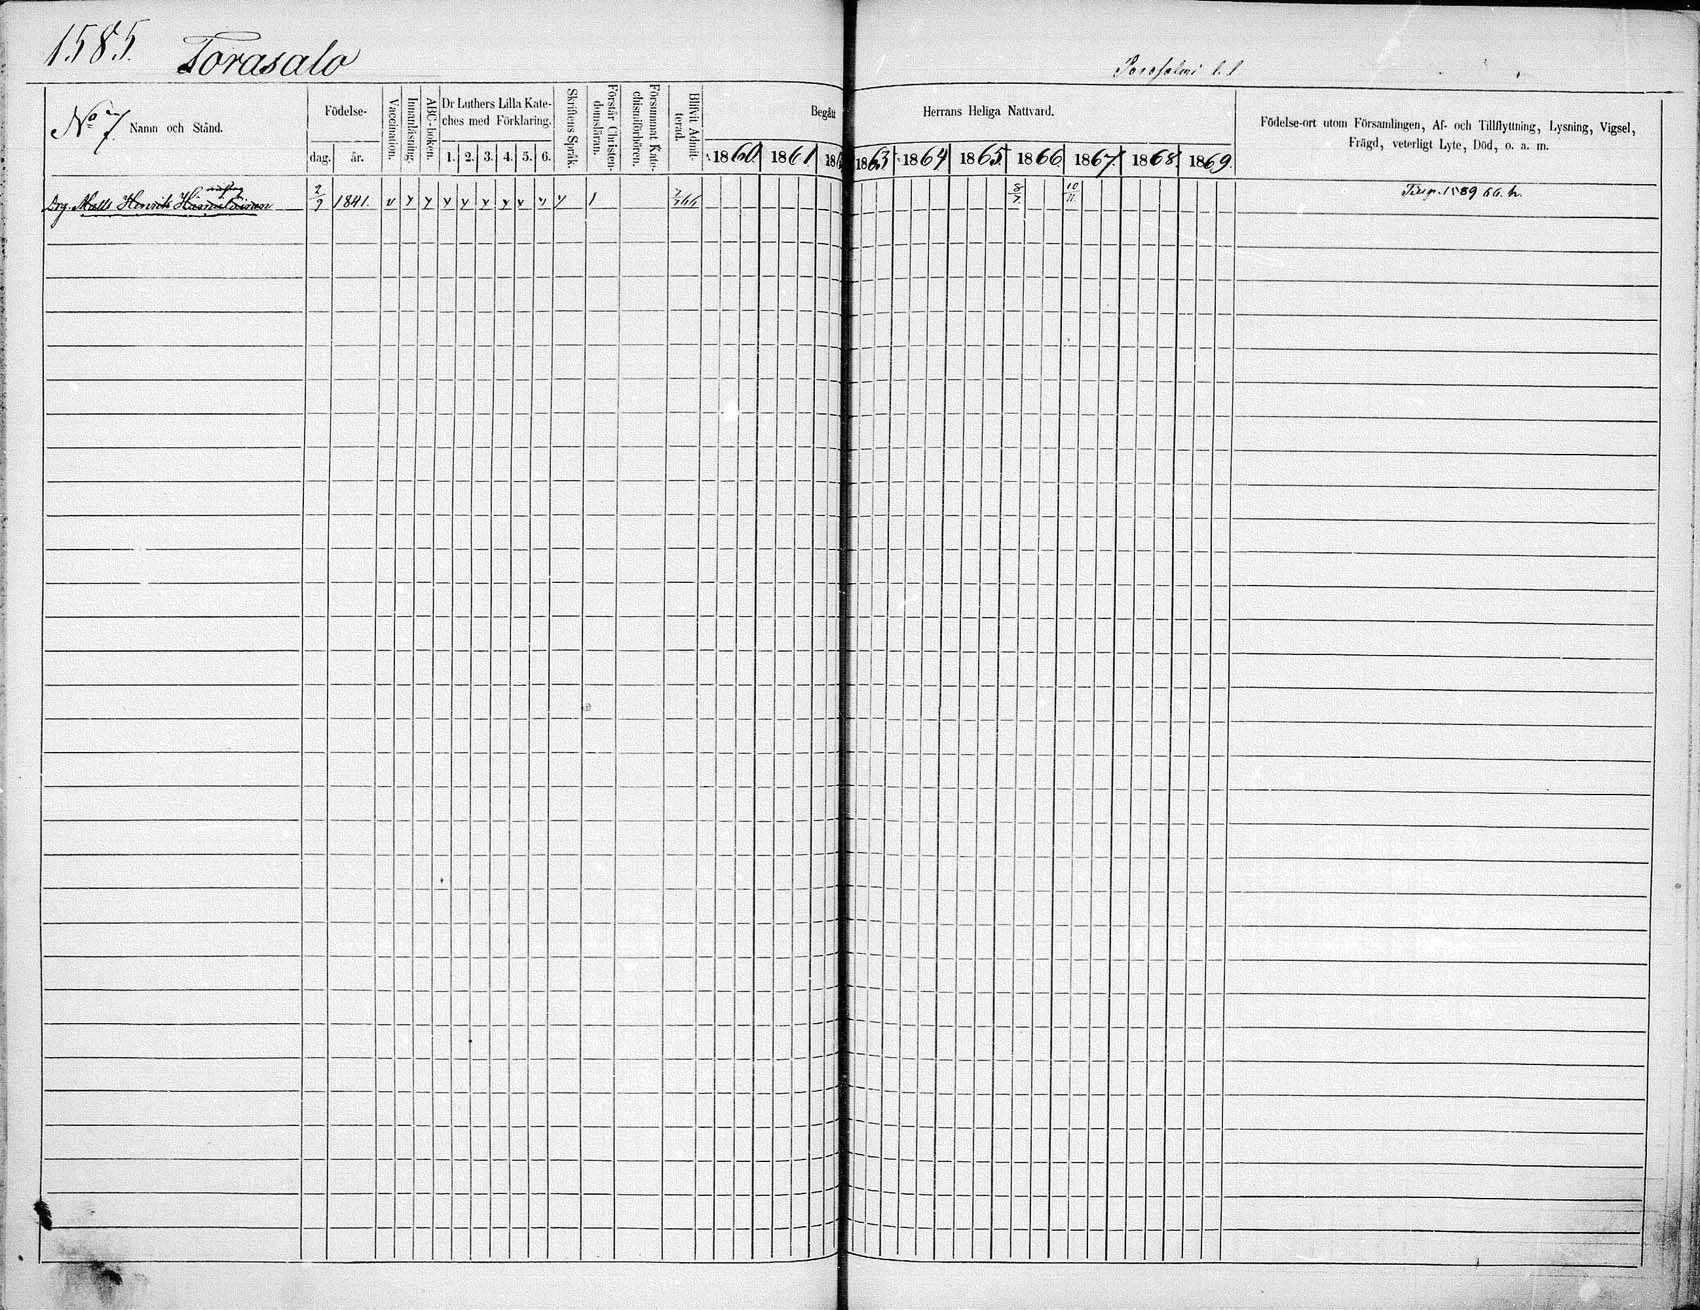 1585. Torasalo
No 7.
Namn och Stånd.
Födelse-
dag. år.
Vaccination.
Innanläsning.
ABC-boken.
Dr Luthers Lilla Kate-
ches med Förklaring.
1. 2. 3. 4. 5. 6.
Skriftens Språk.
Förstår Christen-
domsläran.
Försummat Kate-
chismiförhören.
Blifvit Admit-
terad.
Begått Herrans Heliga Nattvard.
1860 1861 186 1863 1864 1865 1866 1867 1868 1869.
Födelse-ort utom Församlingen, Af- och Tillflyttning, Lysning, Vigsel,
Frägd, veterligt Lyte, Död, o. a. m.
Drg. Matts Henriks 2/7 1841. v y y y y y y y y y 1 7/66 8/7 10/11 1589 66. h.